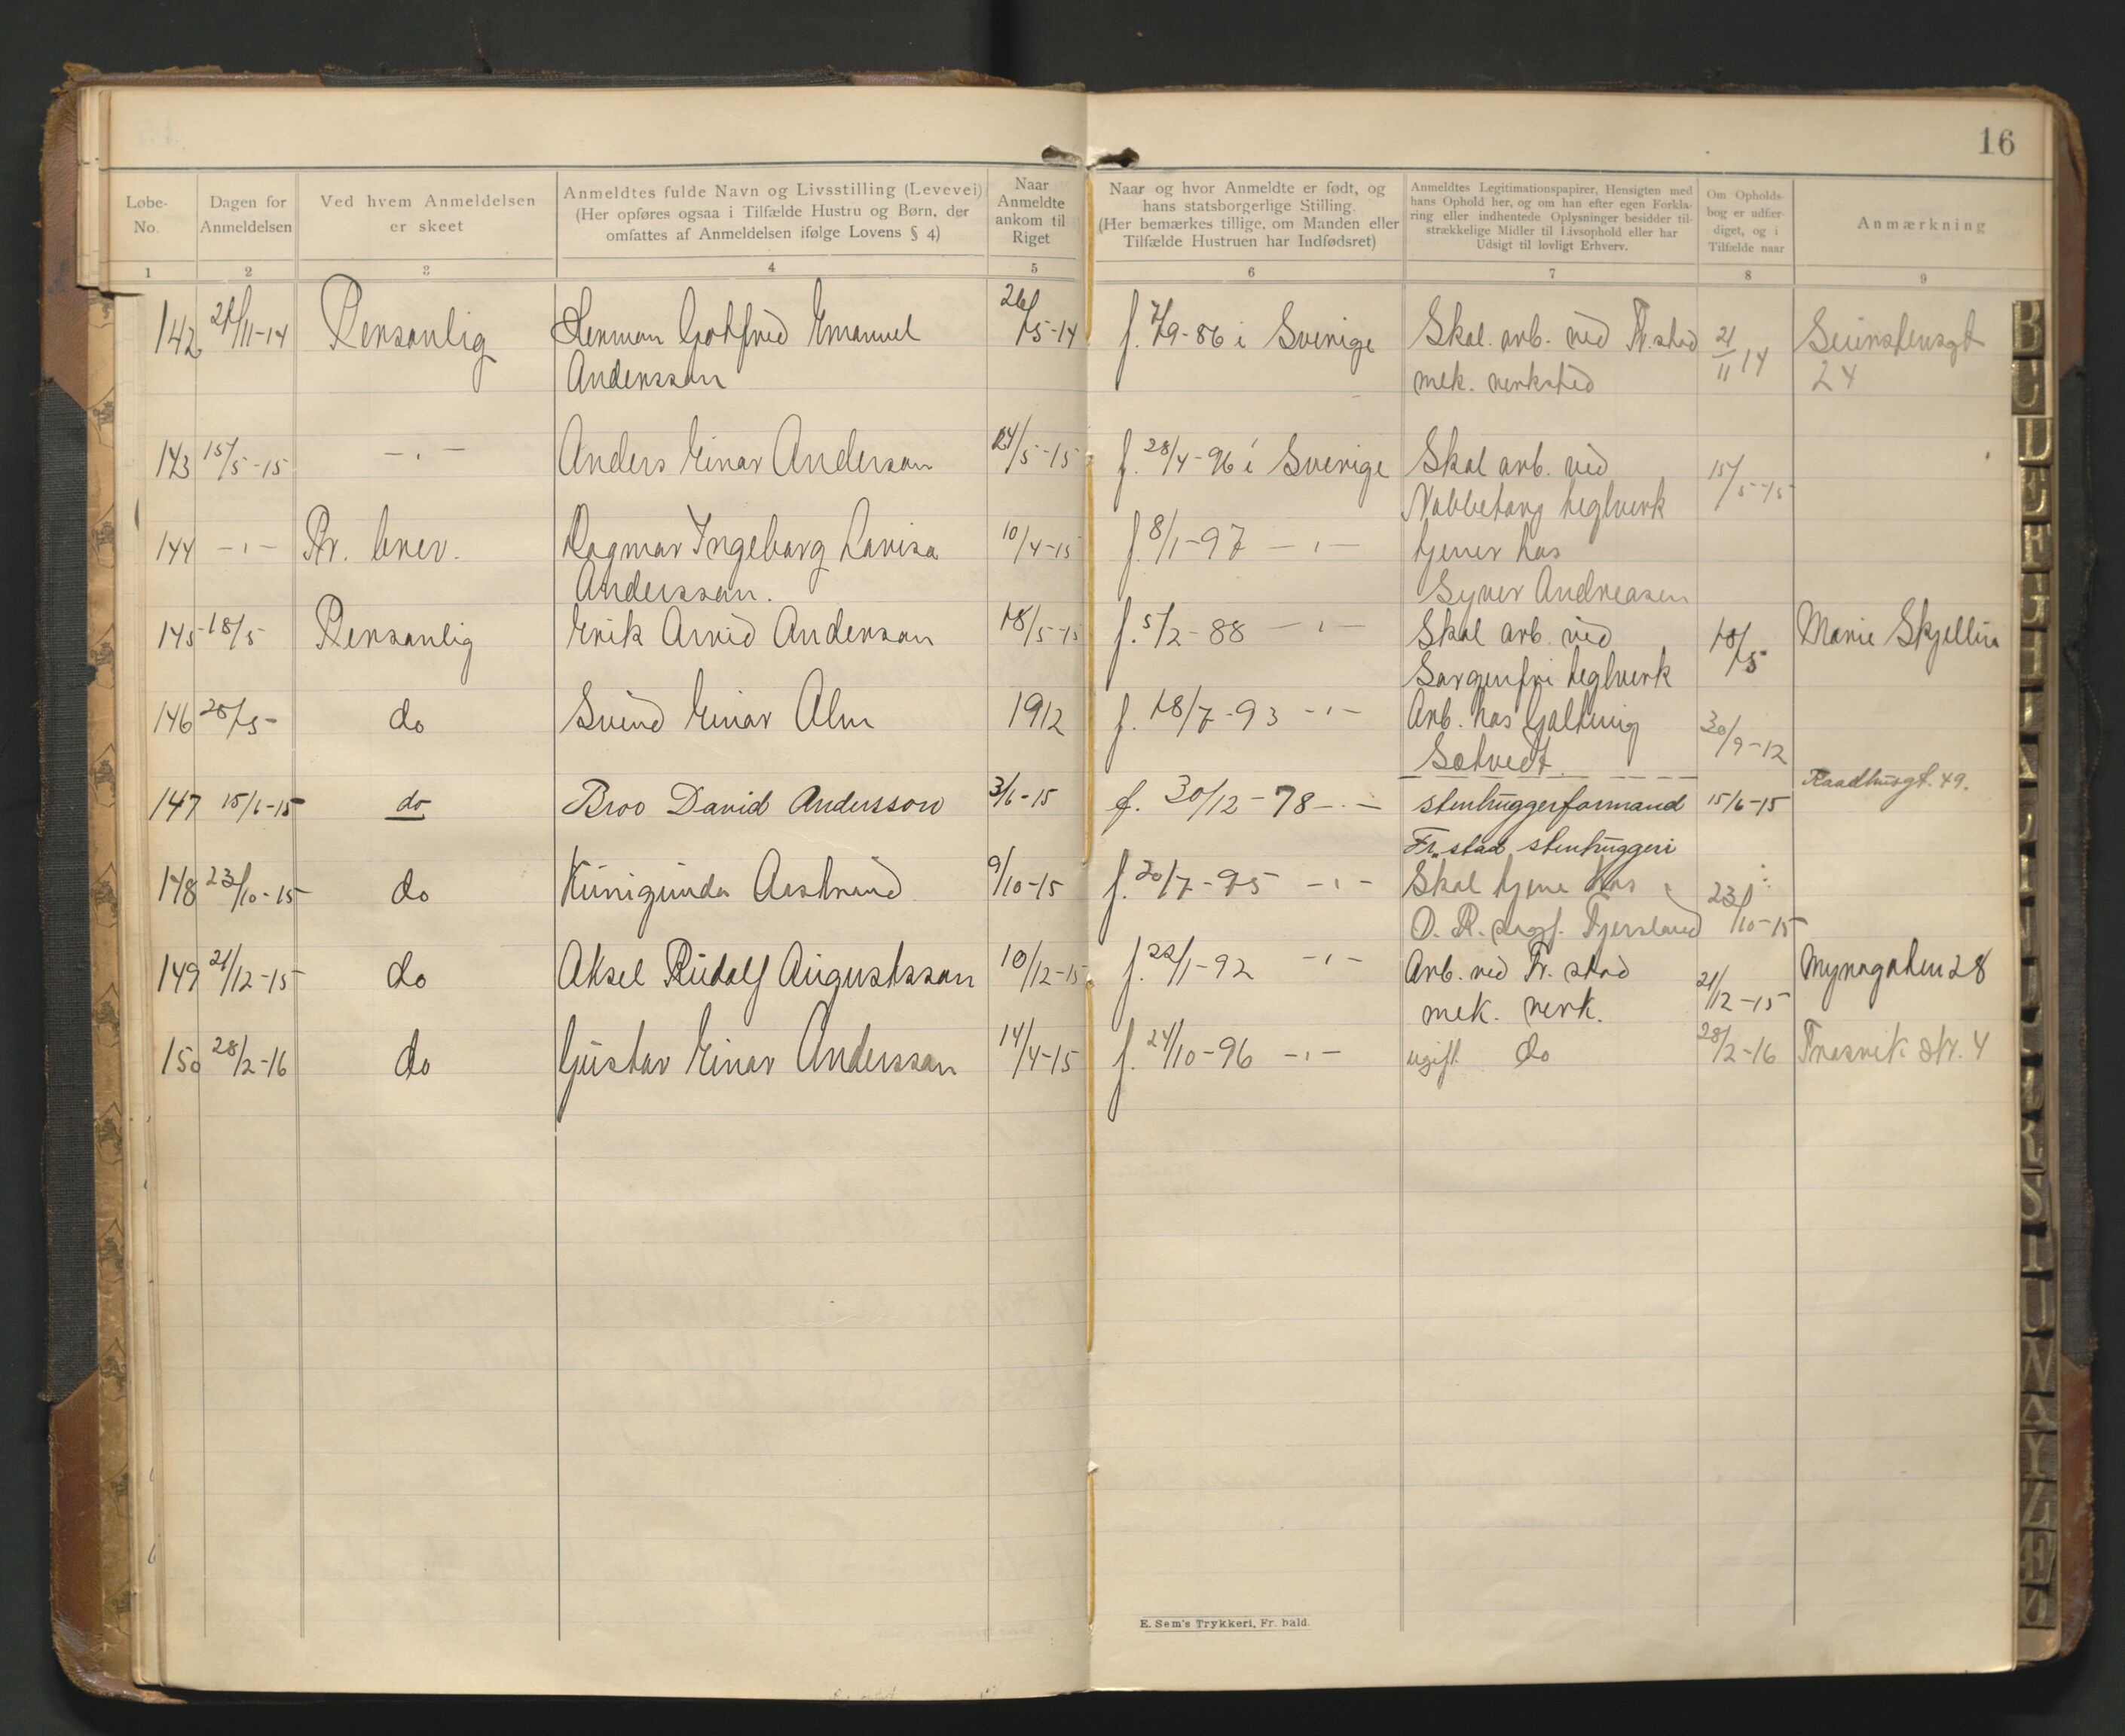 16
Løbe-
No.
Dagen for
Anmeldelsen
Ved hvem Anmeldelsen
er skeet
Anmeldtes fulde Navn og Livsstilling (Levevei)
(Her opføres ogsaa i Tilfælde Hustru og Børn, der
omfattes af Anmeldelsen ifølge Lovens § 4)
Naar
Anmeldte
ankom til
Riget
Naar og hvor Anmeldte er født, og
hans statsborgerlige Stilling.
(Her bemærkes tillige, om Manden eller
Tilfælde Hustruen har Indfødsret)
Anmeldtes Legitimationspapirer, Hensigten med
hans Ophold her, og om han efter egen Forkla-
ring eller indhentede Oplysninger besidder til-
strækkelige Midler til Livsophold eller har
Udsigt til lovligt Erhverv.
Om Opholds-
bog er udfær-
diget, og i
Tilfælde naar
Anmærkning
1 2 3 4 5 6 7 8 9
142 21/11-14 Personlig Herman Gotfred Emanuel 26/5-14 f. 7/9-86 i Sverige Skal arb. ved Fr.stad 21/11 14
Andersson mek. verksted 24
143 15/5-15 -"- Anders Einar Anderson 14/5-15 f. 28/4-96 i Sverige Skal arb. ved 15/5-15
Nabbetorp teglverk
144 -"- Pr. brev. Dagmar Ingeborg Lovisa 10/4-15 f. 8/1-97 -"- tjener hos
Andersson. Syver Andreasen
145 18/5 Personlig Erik Arvid Anderson 18/5-15 f. 5/2-88 -"- Skal arb. ved 18/5 Marie
Sorgenfri teglverk
146 28/5- do Svend Einar Alm 1912 f. 18/7-93 -"- Arb. hos 30/9-12
147 15/6-15 do Broo David Andersson 3/6-15 f. 30/12-78 -"- stenhuggerformand 15/6-15 Raadhusgt. 49.
Fr.stad stenhuggeri
148 23/10-15 do Kunigunda Aastrand 9/10-15 f. 20/7-95 -"- Skal tjene hos 23/10-15
149 21/12-15 do Aksel Rudolf Augustsson 10/12-15 f. 22/1-92 -"- Arb. ved Fr. stad 21/12-15 Myragaten 28
mek. verk.
150 28/2-16 do Gustav Einar Andersson 14/4-15 f. 24/10-96 -"- ugift do 28/2-16 Trosvik str. 4
E. Sem's Trykkeri, Fr. hald.